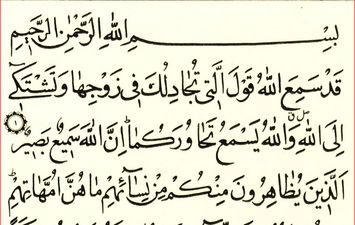 بِسْمِ اللهِ الرَّحْمٰنِ الرَّحِيْمِ
قَدْ سَمِعَ اللهُ قَوْلَ الَّتِيْ تُجَادِلُكَ فِيْ زَوْجِهَا وَتَشْتَكِيْٓ
اِلَى اللهِ وَاللهُ يَسْمَعُ تَحَاوُرَكُمَا اِنَّ اللهَ سَمِيْعٌ بَصِيْرٌ ١
اَلَّذِيْنَ يُظَاهِرُوْنَ مِنْكُمْ مِنْ نِسَآئِهِمْ مَا هُنَّ اُمَّهَاتِهِمْ